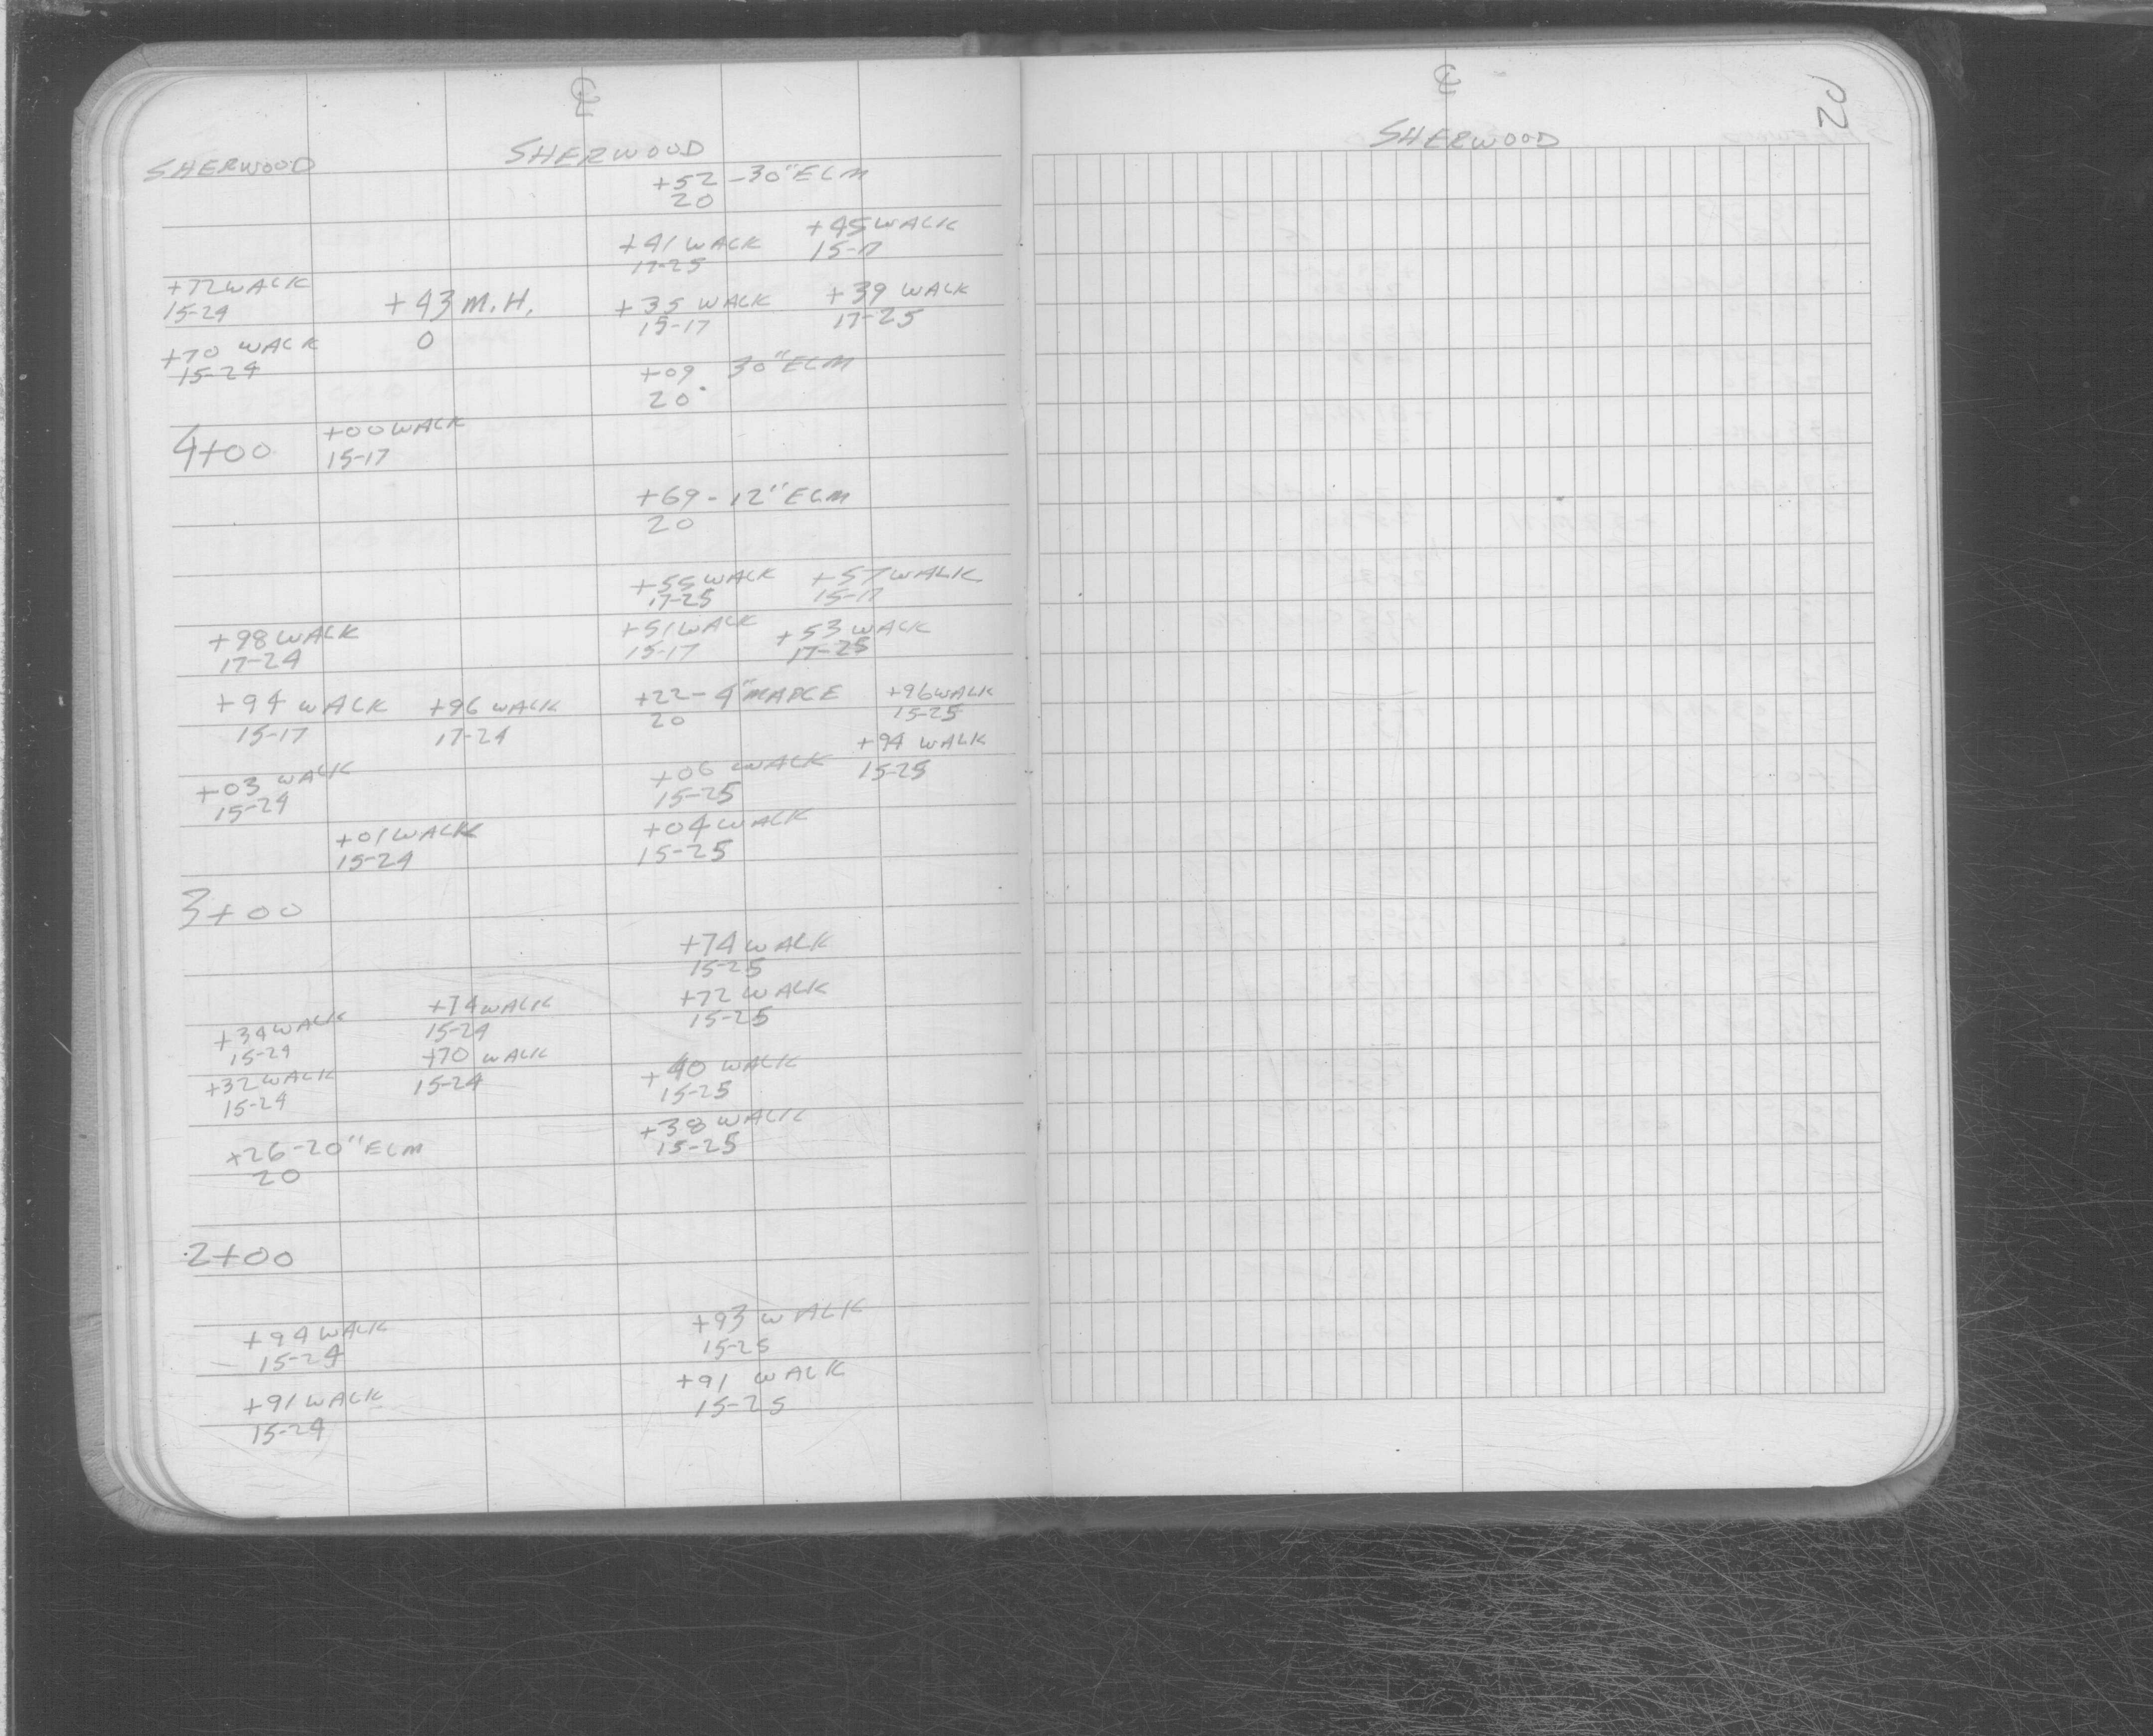 ℄
SHERWOOD SHERWOOD
+52 -30" ELM
20
+41 WALK +45 WALK
17-25 15-17
+72 WALK
15-24
+43 M.H.
0
+35 WALK +39 WALK
15-17 17-25
+70 WALK
15-24
+09 30" ELM
20
4+00 +00 WALK
15-17
+69 - 12" ELM
20
+55 WALK +57 WALK
17-25 15-17
+98 WALK +51 WALK +53 WALK
17-24 15-17 17-25
+94 WALK +96 WALK +22 - 4" MAPLE +96 WALK
15-17 17-24 20 15-25
+94 WALK
15-25
+03 WALK +06 WALK
15-24 15-25
+01 WALK +04 WALK
15-24 15-25
3+00
+74 WALK
15-25
+34 WALK +74 WALK +72 WALK
15-24 15-24 15-25
+32 WALK +70 WALK +40 WALK
15-24 15-24 15-25
+26 - 20" ELM +38 WALK
20 15-25
2+00
+94 WALK +93 WALK
15-24 15-25
+91 WALK +91 WALK
15-24 15-25
℄
SHERWOOD
20